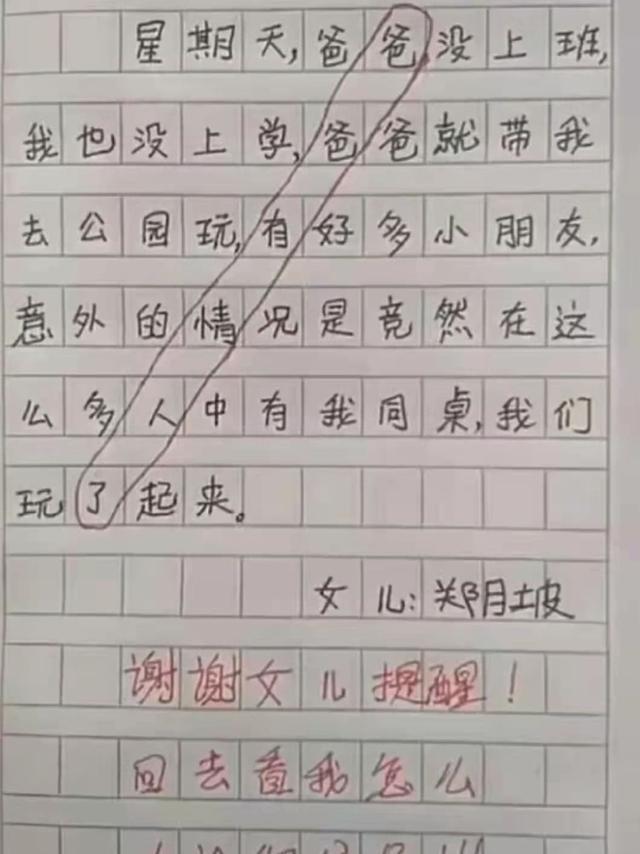 星期天,爸爸没上班,
我也没上学,爸爸就带我
去公园玩,有好多小朋友,
意外的情况是竟然在这
么多人中有我同桌,我们
玩了起来。
女儿:郑阴坡
谢谢女儿提醒!
回去看我怎么